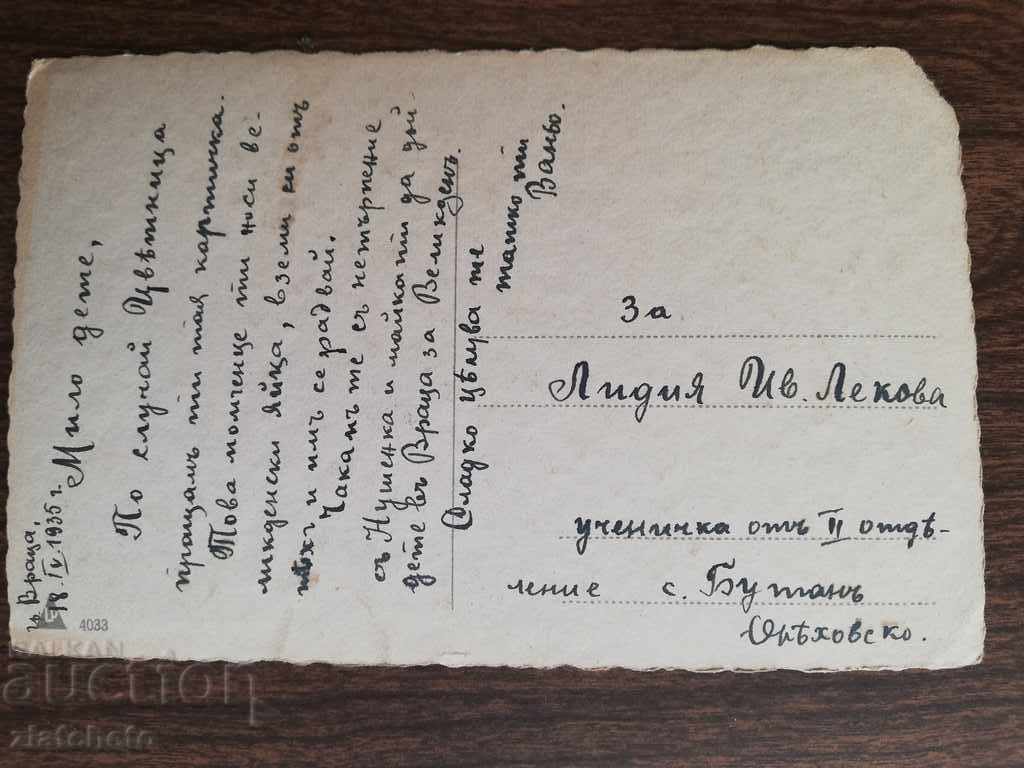 гр. Враца,
18.IV.1935 г.
Мило дете,
По случай Цвѣтница
пращамъ ти тая картичка.
Това момченце ти носи ве-
ликденски яйца, вземи си отъ
тѣхъ и имъ се радвай.
Чакамъ те съ нетърпение
съ Нушенка и майка ти да дой-
дете въ Враца за Великденъ.
Сладко цѣлува те
татко ти
Ваньо.
За
Лидия Ив. Лекова
ученичка отъ II отдѣ-
ление с. Бутанъ
Орѣховско.
4033
BALKAN
auction
zlatohoto